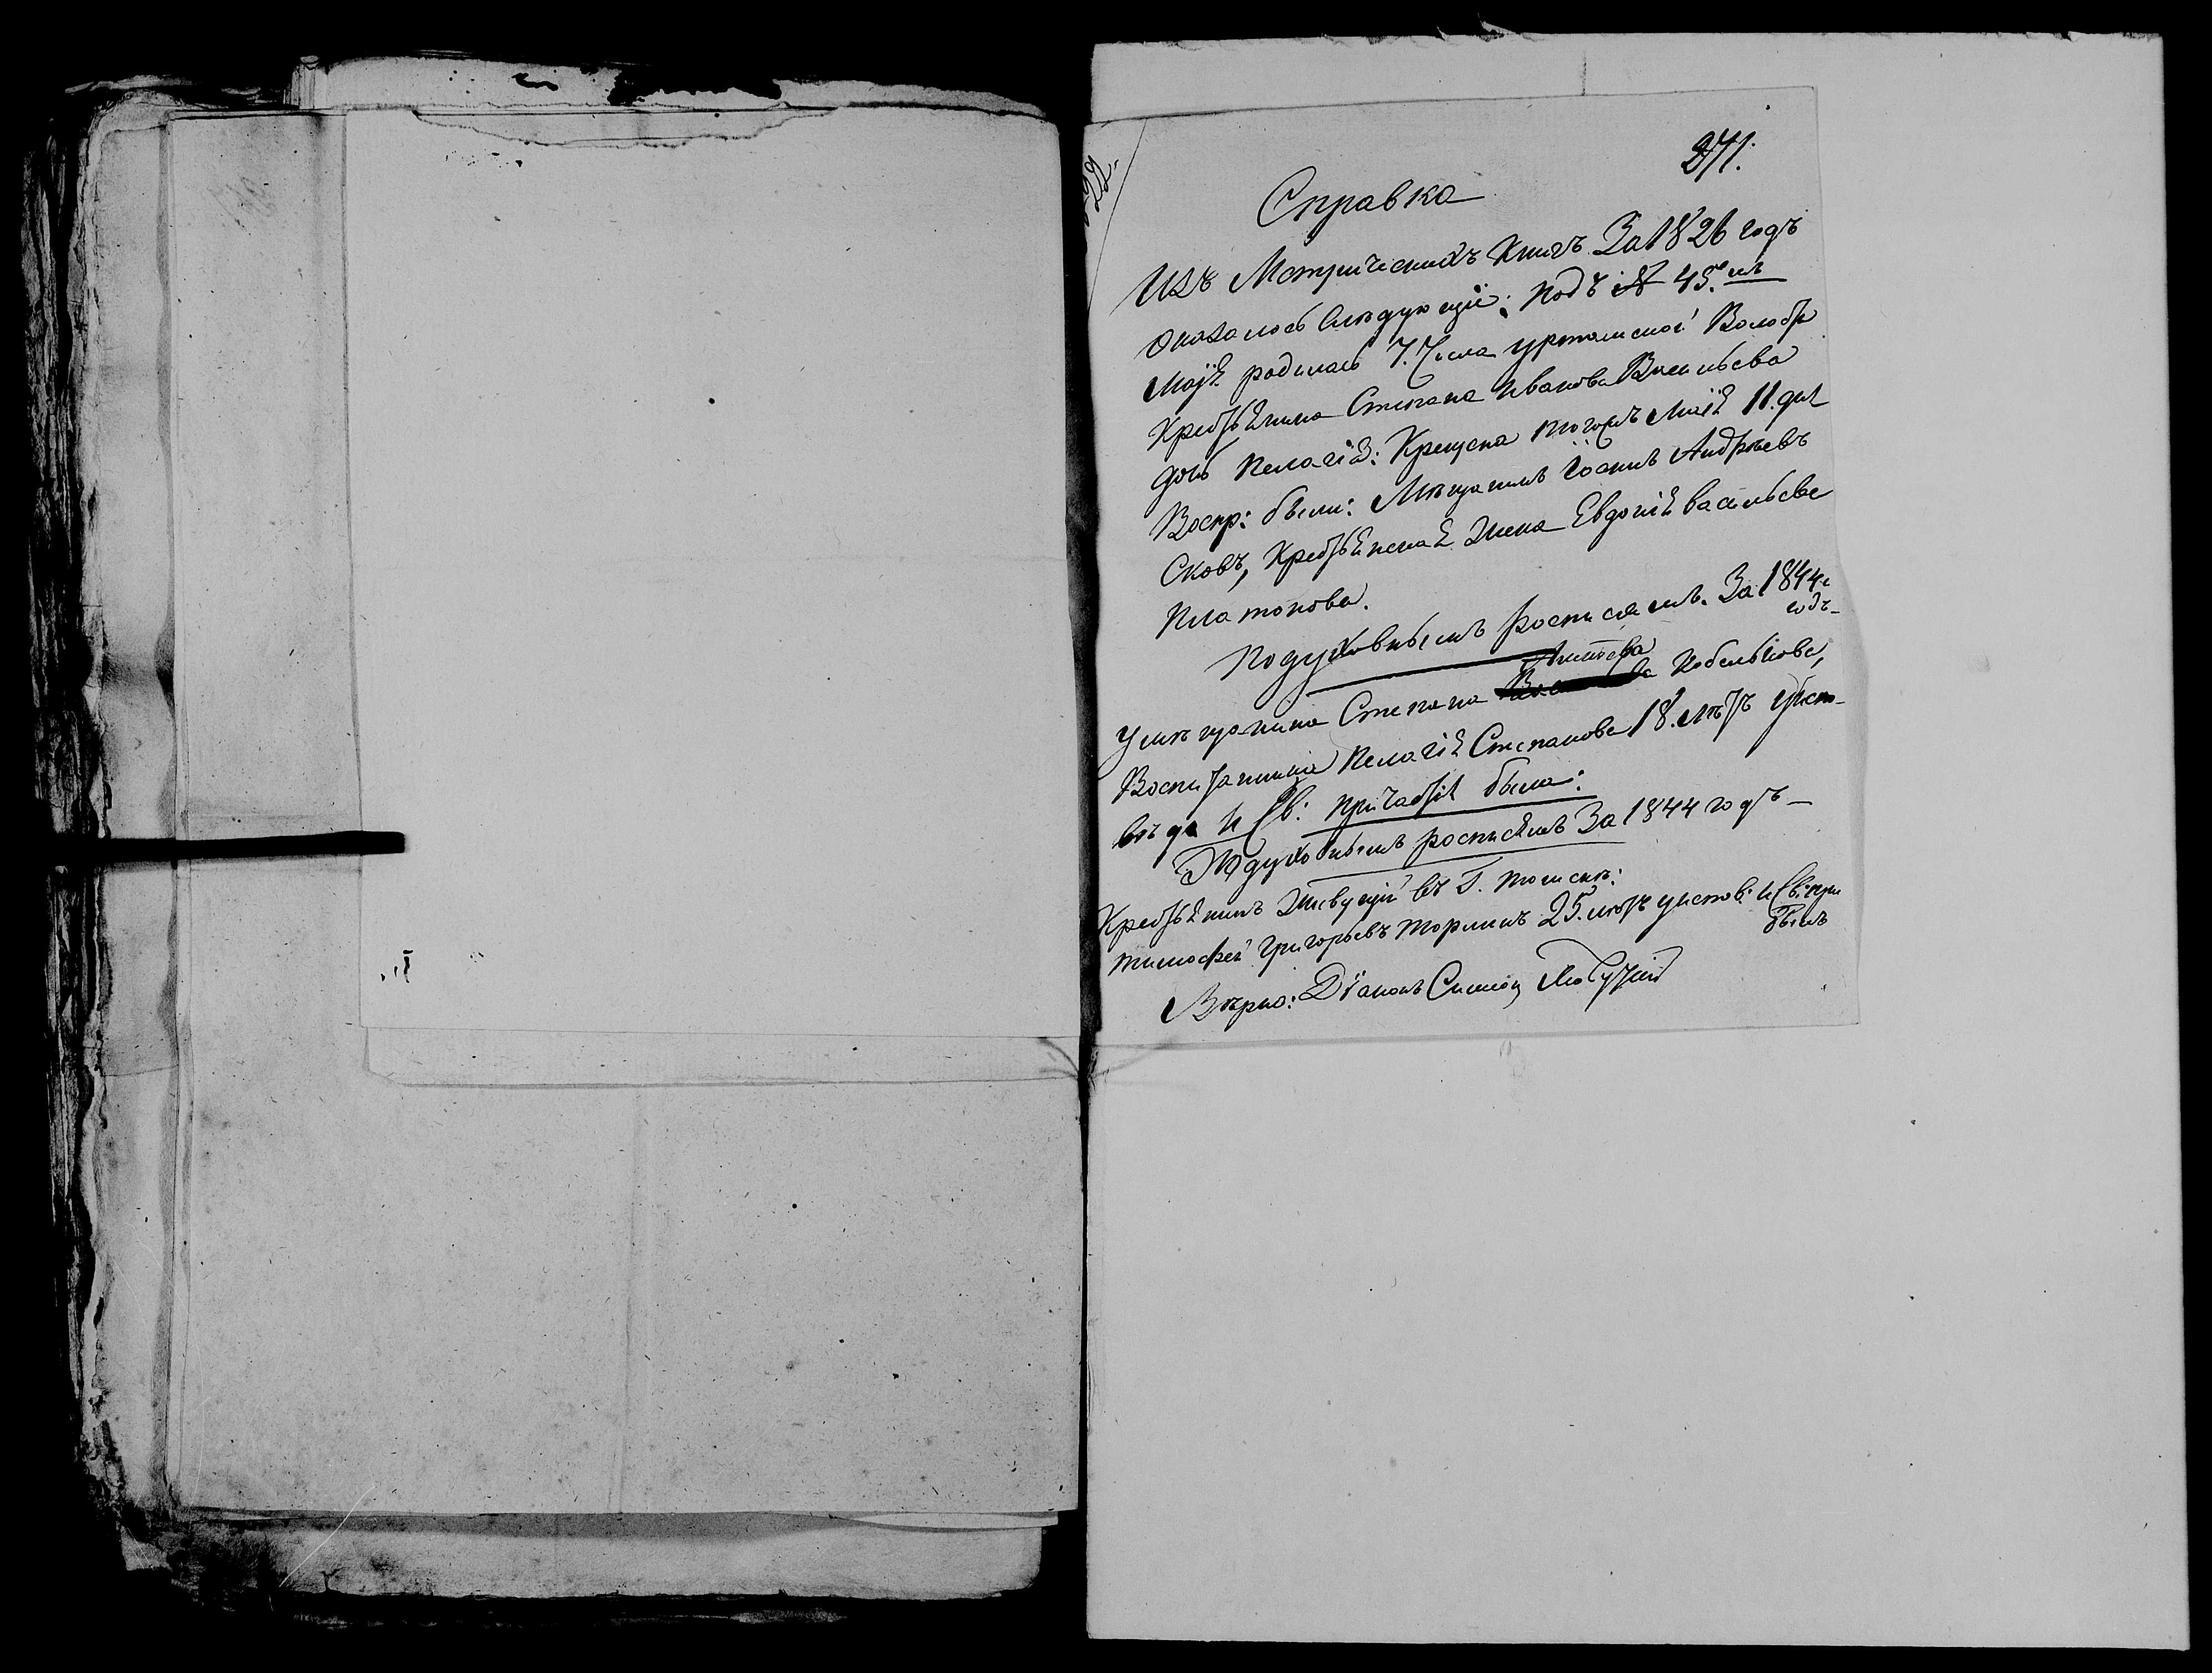 271.
22.
Справка
Изъ Метрическихъ Книгъ За 1826 годъ
оказалось слѣдующіе: подъ № 45.мъ
Маія родилась 7. Числа уртамской Волости
Крестьянина Степана Иванова Васильева
дочь Пелагія: Крещена тогожъ Маія 11. дня
Воспр: были: Мѣщанинъ Іоаннъ Андрѣевъ
Сковъ, Крестьянская Жена Евдокія васильева
Платонова.
По духовнымъ росписямъ За 1844.
годъ
У мѣщанина Степана Кобелькова,
Воспитанница Пелагія Степанова 18. лѣтъ у испо-
вѣди и Св: причастія была:
По духовнымъ росписямъ За 1844 годъ
Крестьянинъ Живущій въ Г. томскѣ:
тимофей Григорьевъ 25. лѣтъ у испов: и Св: при
былъ
Вѣрно: Діаконъ Симеонъ